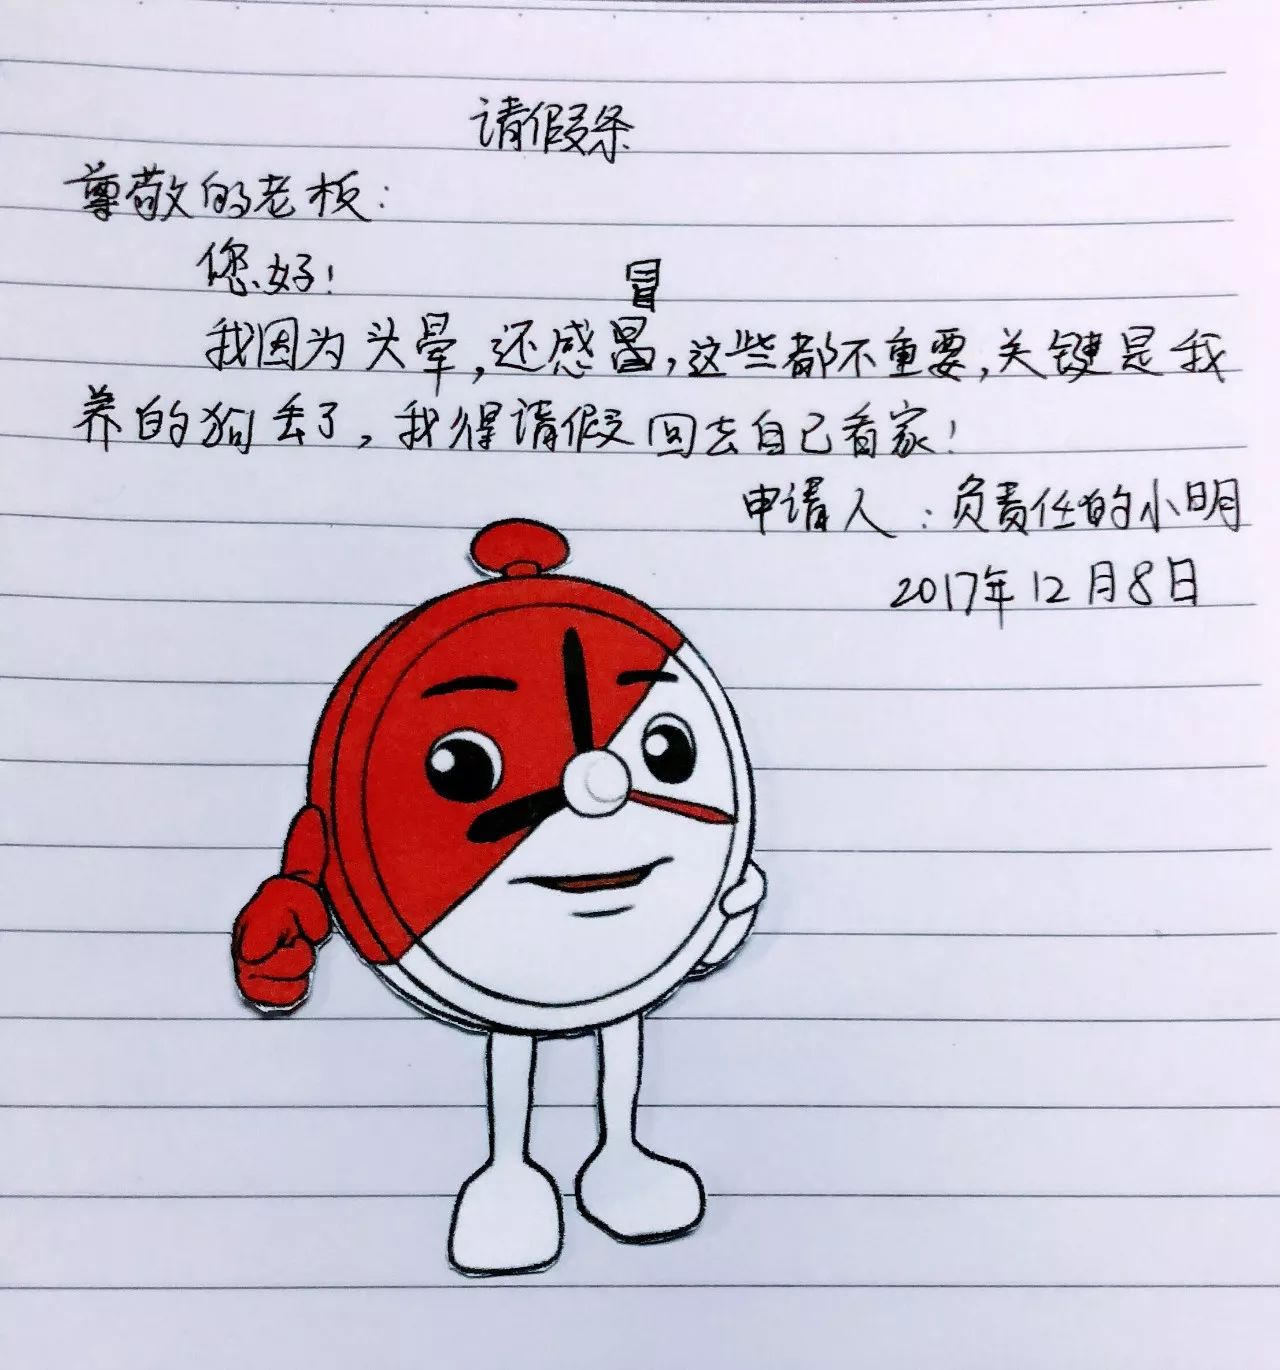 请假条
尊敬的老板：
您好！
冒
我因为头晕，还感冒，这些都不重要，关键是我
养的狗丢了，我得请假回去自己看家！
申请人：负责任的小明
2017年12月8日